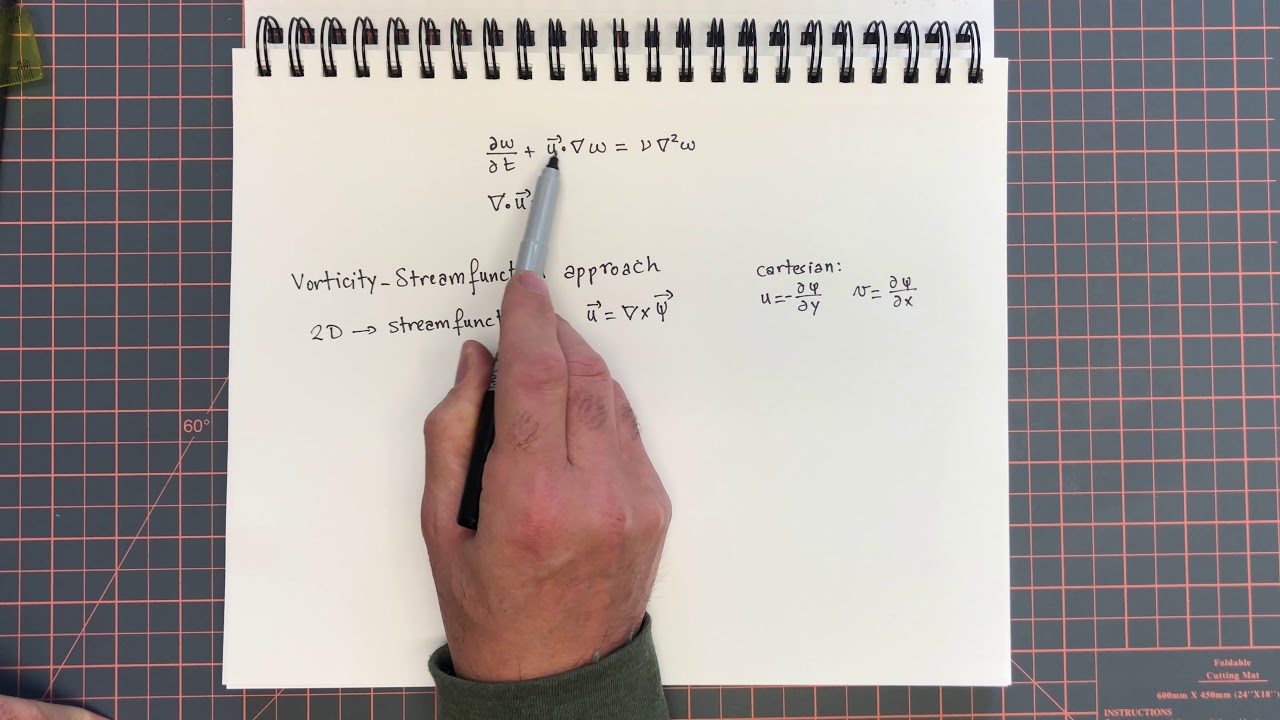 ∂ω/∂t + u⃗·∇ω = ν∇²ω
∇·u⃗
Vorticity-Streamfunct approach
2D → streamfunct u⃗ = ∇×ψ⃗
cartesian:
u=-∂ψ/∂y v=∂ψ/∂x
60°
Foldable
Cutting Mat
600mm X 450mm (24"X18")
INSTRUCTIONS